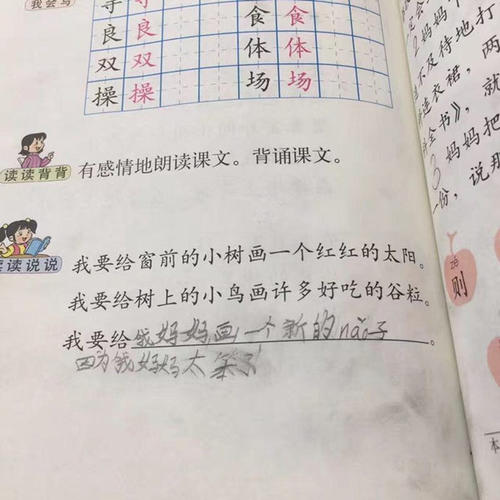 我会写
导 导
良 良 食 食
双 双 体 体
操 操 场 场
读读背背
有感情地朗读课文。背诵课文。
读读说说
我要给窗前的小树画一个红红的太阳。
我要给树上的小鸟画许多好吃的谷粒。
我要给我妈妈画一个新的nǎo子。
因为我妈妈太笨了
2妈妈
不及待地打
连衣裙，两
全书》，就
3妈妈把
一份，说那
则
本